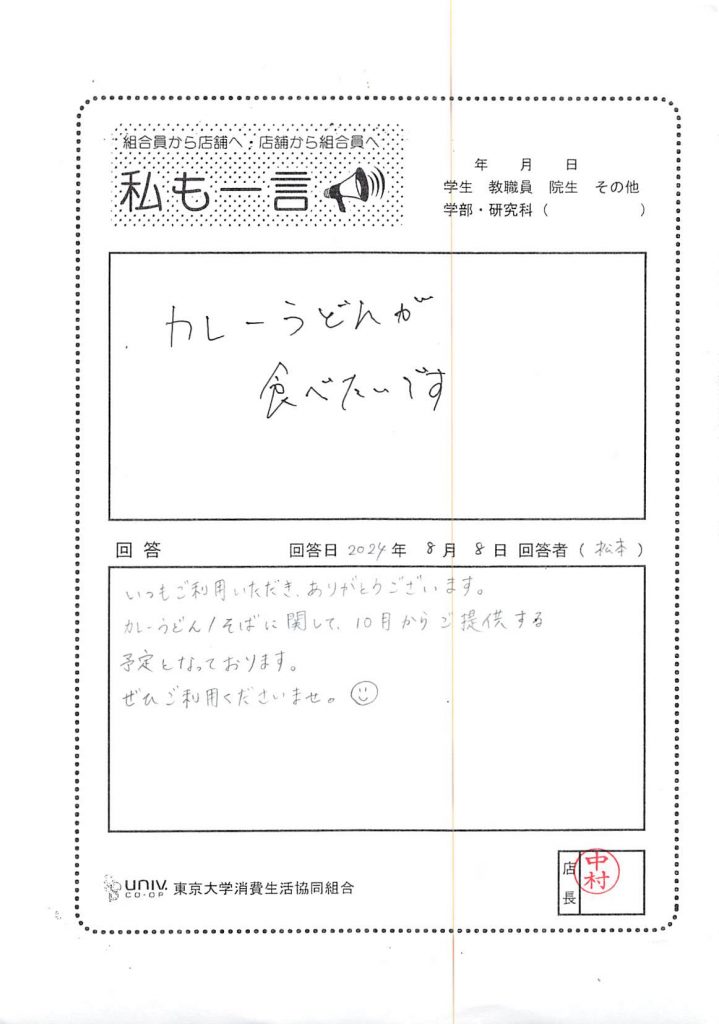 組合員から店舗へ・店舗から組合員へ
私も一言
年 月 日
学生 教職員 院生 その他
学部・研究科( )
カレーうどんが
食べたいです
回答 回答日 2024年 8月 8日 回答者(松本)
いつもご利用いただき、ありがとうございます。
カレーうどん/そばに関して、10月からご提供する
予定となっております。
ぜひご利用くださいませ。
UNIV. CO-OP 東京大学消費生活協同組合
店長
中村